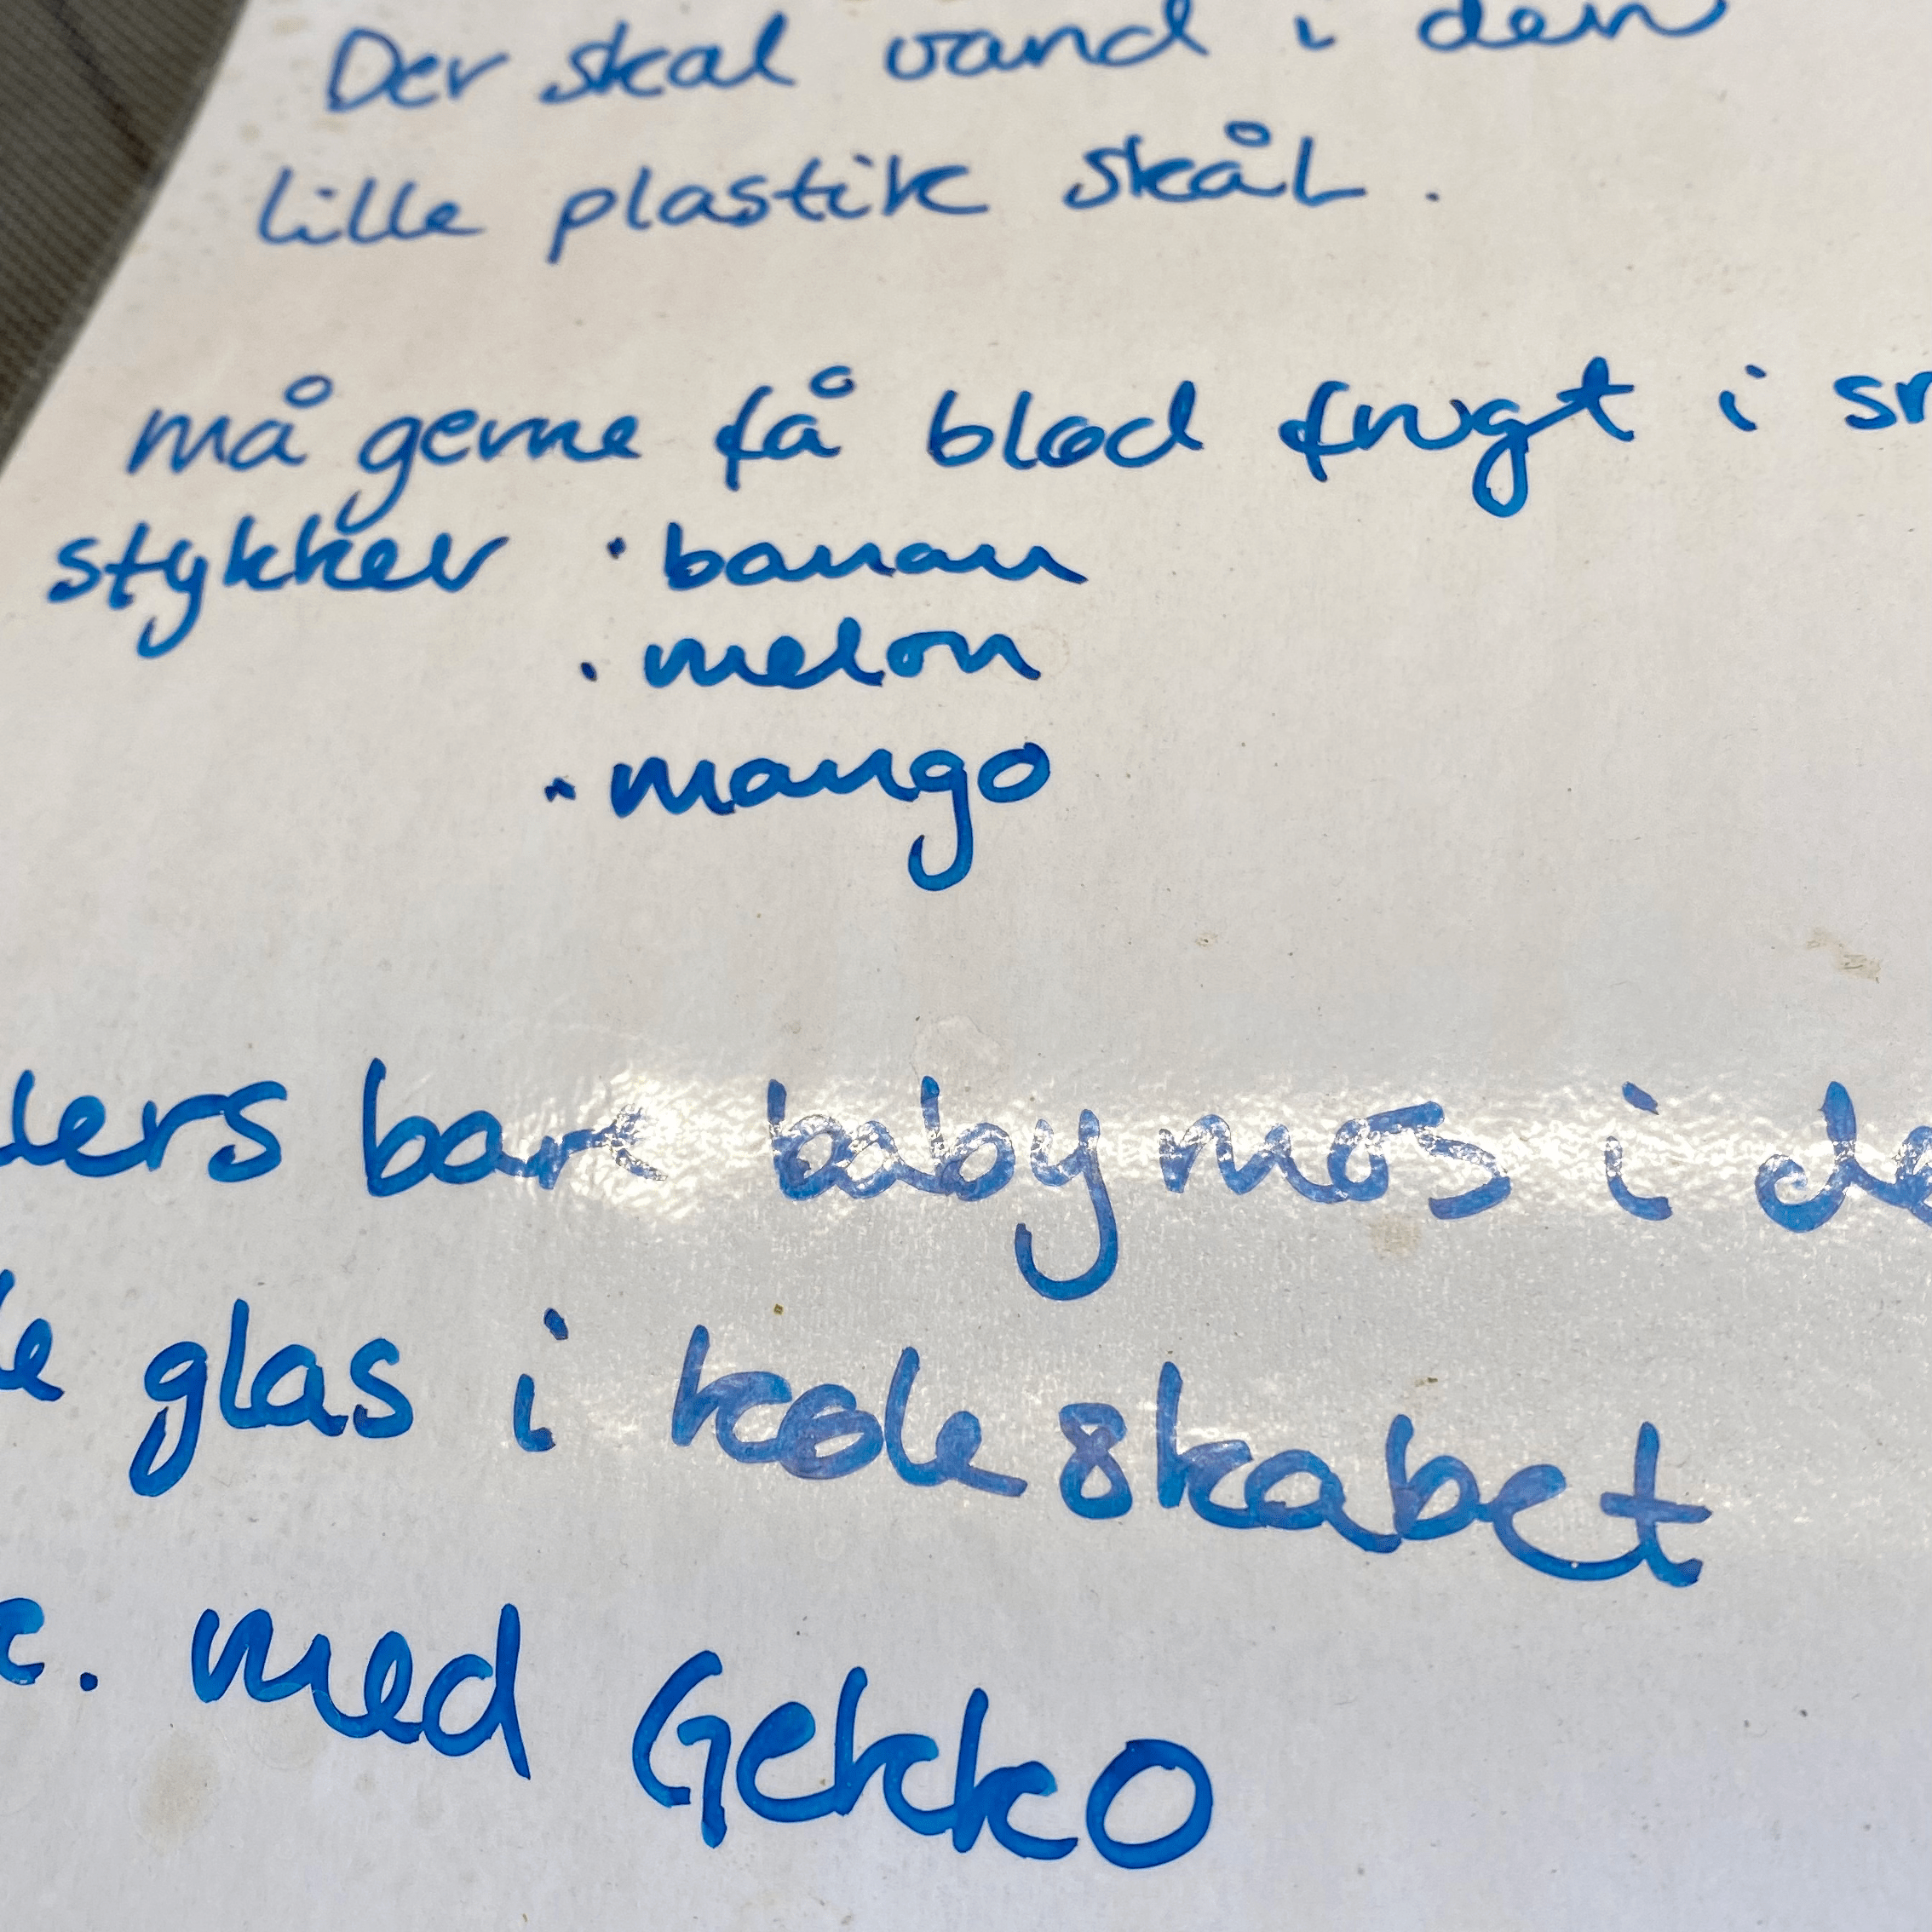 Der skal vand i den
lille plastik skål.
må gerne få blød frugt i
stykker · banan
· melon
· mango
bare babymos i
glas i køleskabet
med Gekko